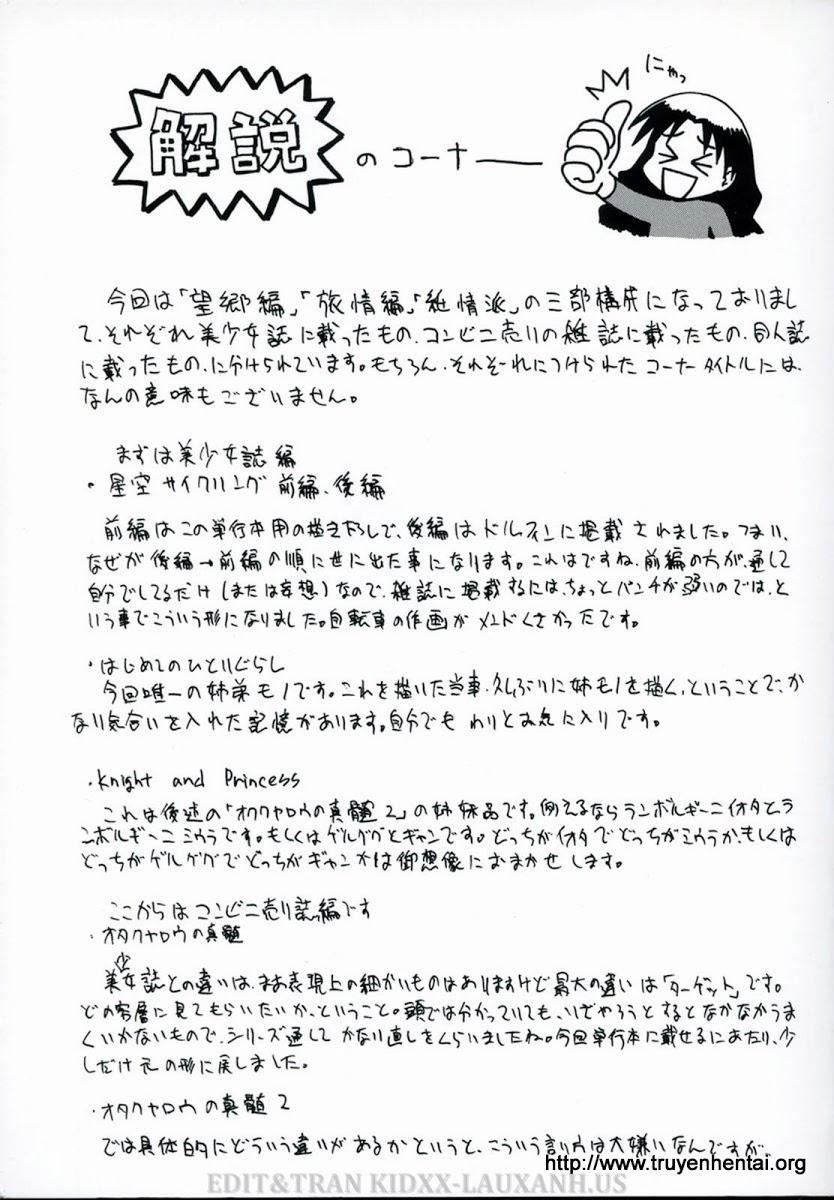 にゃっ
解説のコーナー
今回は「望郷編」「旅情編」「純情派」の三部構成になっておりまし
て、それぞれ美少女誌に載ったもの、コンビニ売りの雑誌に載ったもの、同人誌
に載ったもの、に分けられています。もちろん、それぞれにつけられたコーナータイトルには、
なんの意味もございません。
まずは美少女誌編
・星空サイクリング 前編、後編
前編はこの単行本用の描き下しで、後編はドルフィンに掲載されました。つまり、
なぜか後編→前編の順に世に出た事になります。これはですね、前編の方が、通して
自分でしてるだけ(または妄想)なので、雑誌に掲載するには、ちょっとパンチが弱いのでは、と
いう事でこういう形になりました。自転車の作画がメンドくさかったです。
・はじめてのひとりぐらし
今回唯一の姉弟モノです。これを描いた当事、久しぶりに姉モノを描く、ということで、か
なり気合いを入れた記憶があります。自分でもわりとお気に入りです。
・Knight and Princess
これは後述の「オタクヤロウの真髄2」の姉妹品です。例えるならランボルギーニイオタとラ
ンボルギーニミウラです。もしくはゲルググとギャンです。どっちがイオタでどっちがミウラか、もしくは
どっちがゲルググでどっちがギャンかは御想像におまかせします。
ここからはコンビニ売り誌編です
・オタクヤロウの真髄
美少女誌との違いは、まあ表現上の細かいものはありますけど最大の違いは「ターゲット」です。
どの客層に見てもらいたいか、ということ。頭では分かっていても、いざやろうとするとなかなかうま
くいかないもので、シリーズ通してかなり直しをくらいましたね。今回単行本に載せるにあたり、少
しだけ元の形に戻しました。
・オタクヤロウの真髄2
では具体的にどういう違いがあるかというと、こういう言い方は大嫌いなんですが、
http://www.truyenhentai.org
EDIT&TRAN KIDXX-LAUXANH.US